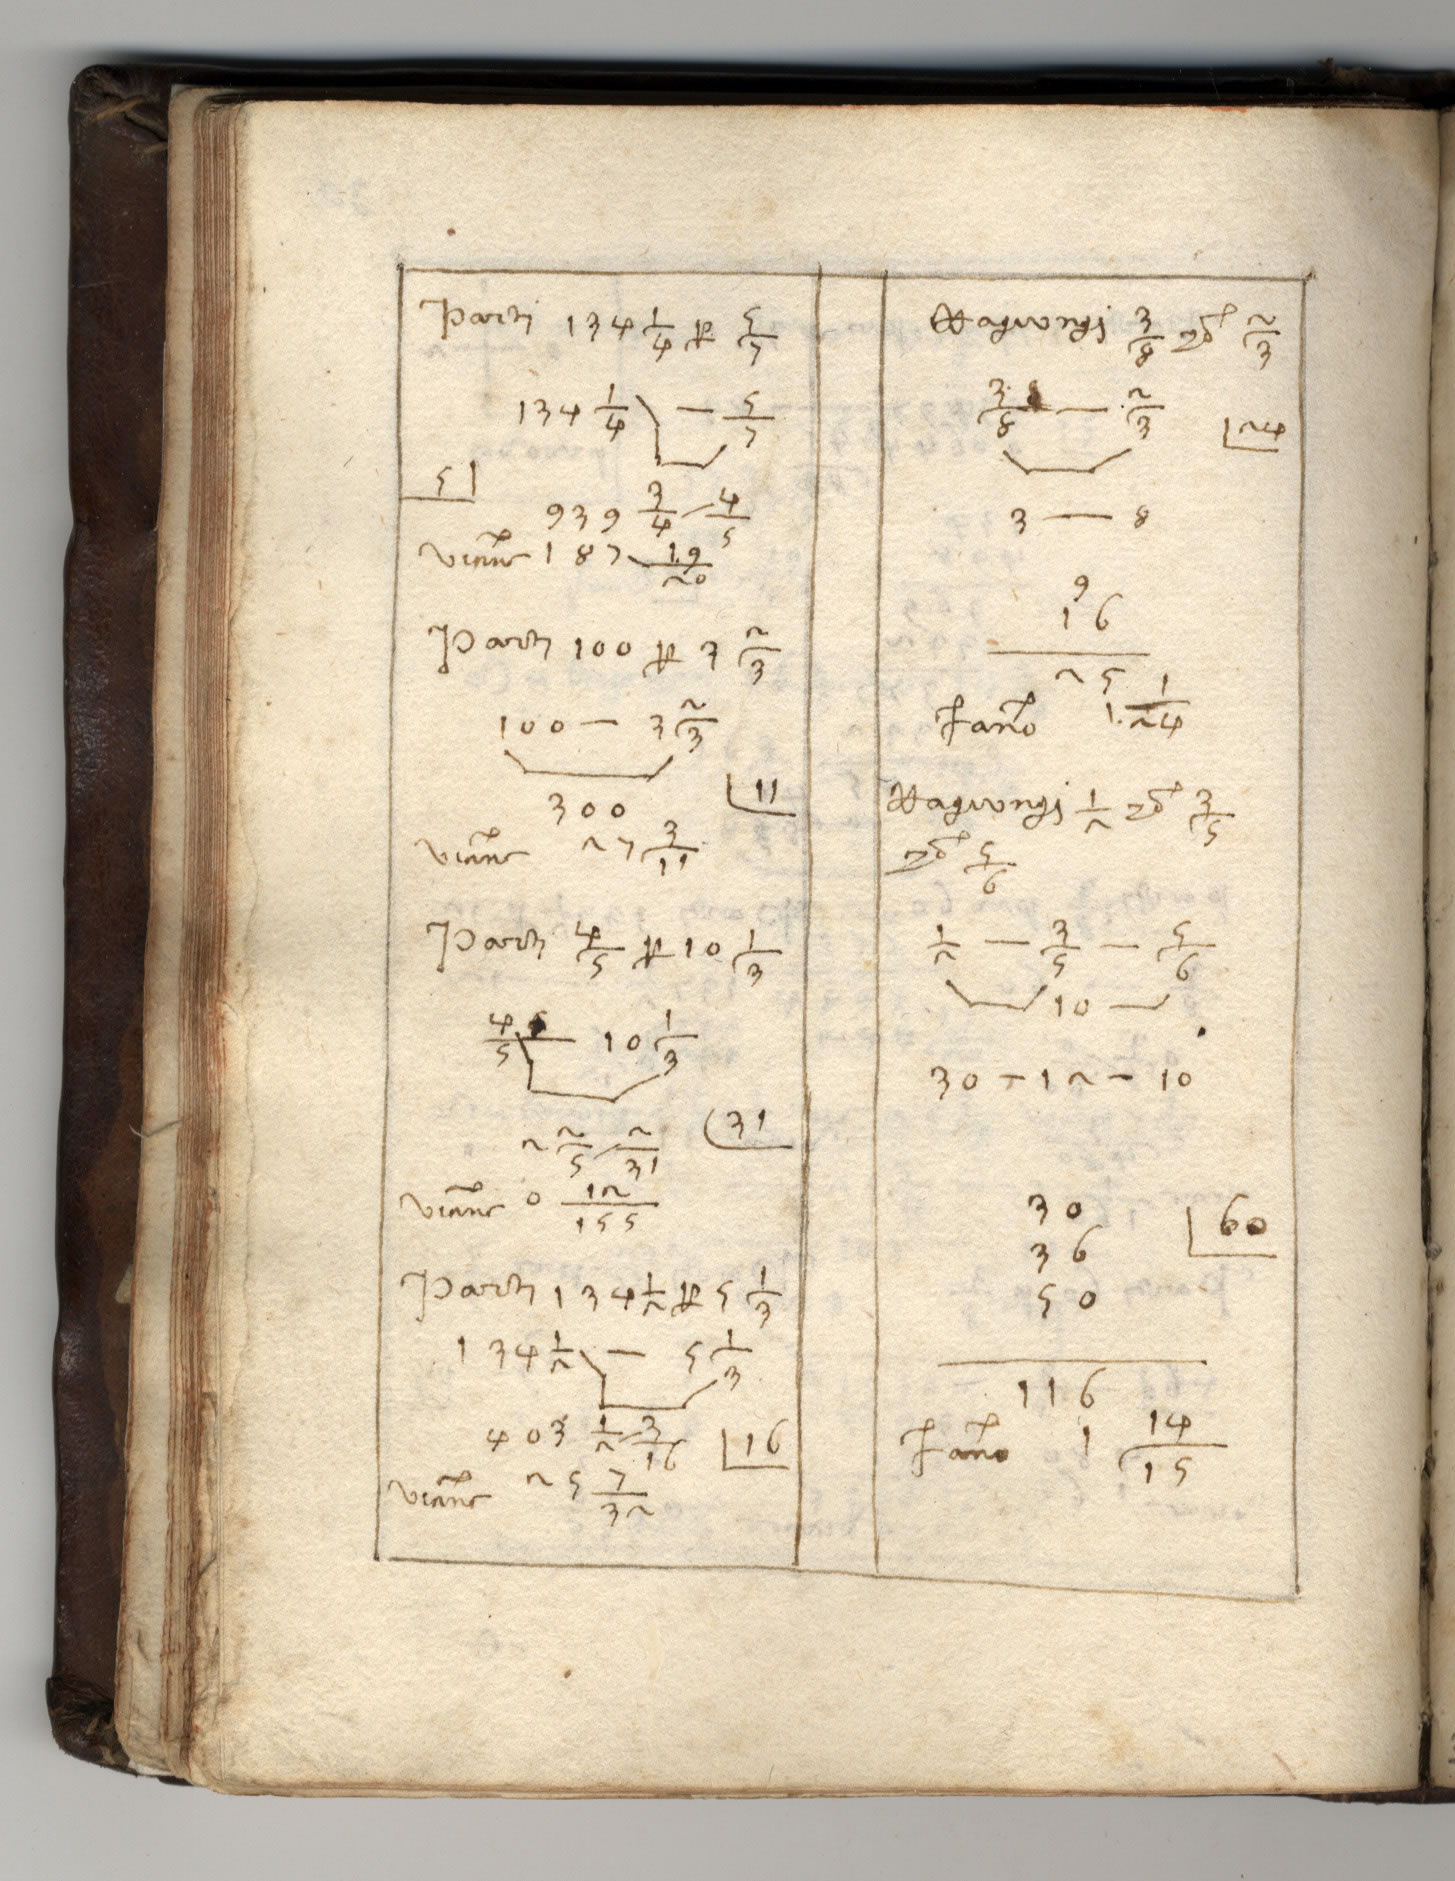 Parti 134 1/4 p 5/7
134 1/4 — 5/7
5
939 3/4 4/5
vienne 187 19/20
Parti 100 p 3 2/3
100 — 3 2/3
11
300
vienne 27 3/11
Parti 4/5 p 10 1/3
4/5 — 10 1/3
31
2 2/5 2/31
vienne 0 12/155
Parti 134 1/2 p 5 1/3
134 1/2 — 5 1/3
403 1/2 3/16
16
vienne 25 7/32
Ragiongi 3/8 2/3
3/8 — 2/3
24
3 — 8
9
16
25
fanno 1 1/24
Ragiongi 1/2 3/5
5/6
1/2 — 3/5 — 5/6
10 —
30 — 12 — 10
30
60
36
50
116
fanno 1 14/15